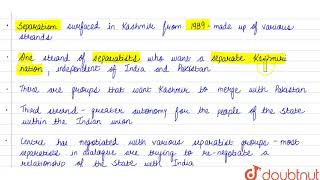 • Separatism surfaced in Kashmir from 1989 - made up of various
strands
• One strand of separatists who want a separate Kashmiri
nation, independent of India and Pakistan
• There are groups that want Kashmir to merge with Pakistan
• Third strand - greater autonomy for the people of the State
within the Indian union
• Centre has negotiated with various separatist groups - most
separatists in dialogue are trying to re-negotiate a
relationship of the State with India
doubtnut